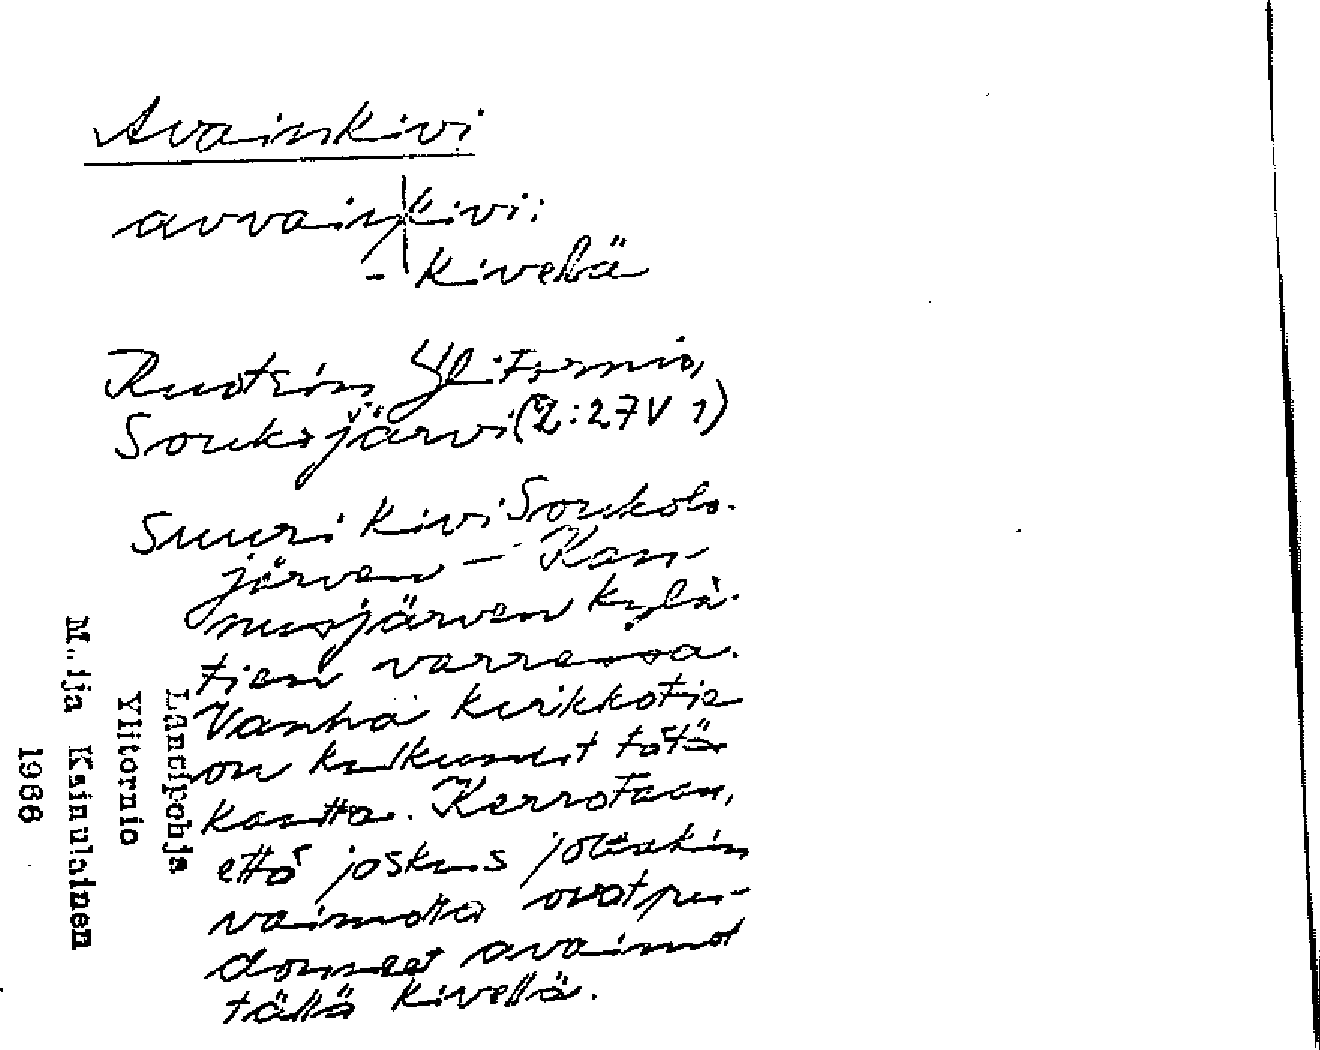 Avainkivi
avvainkivi:
- kivelä
Ruotsin Yli-Tornio,
Soukojärvi (2:27V 1)
Suuri kivi Soukolo-
järven - Kan-
nusjärven kylä-
tien varressa.
Vanha kirkkotie
on kulkenut tätä
kautta. Kerrotaan,
että joskus joltakin
vaimolta ovat pu-
donneet avaimet
tällä kivellä.
Länsipohja
Ylitornio
M..ija Kainulainen
1966